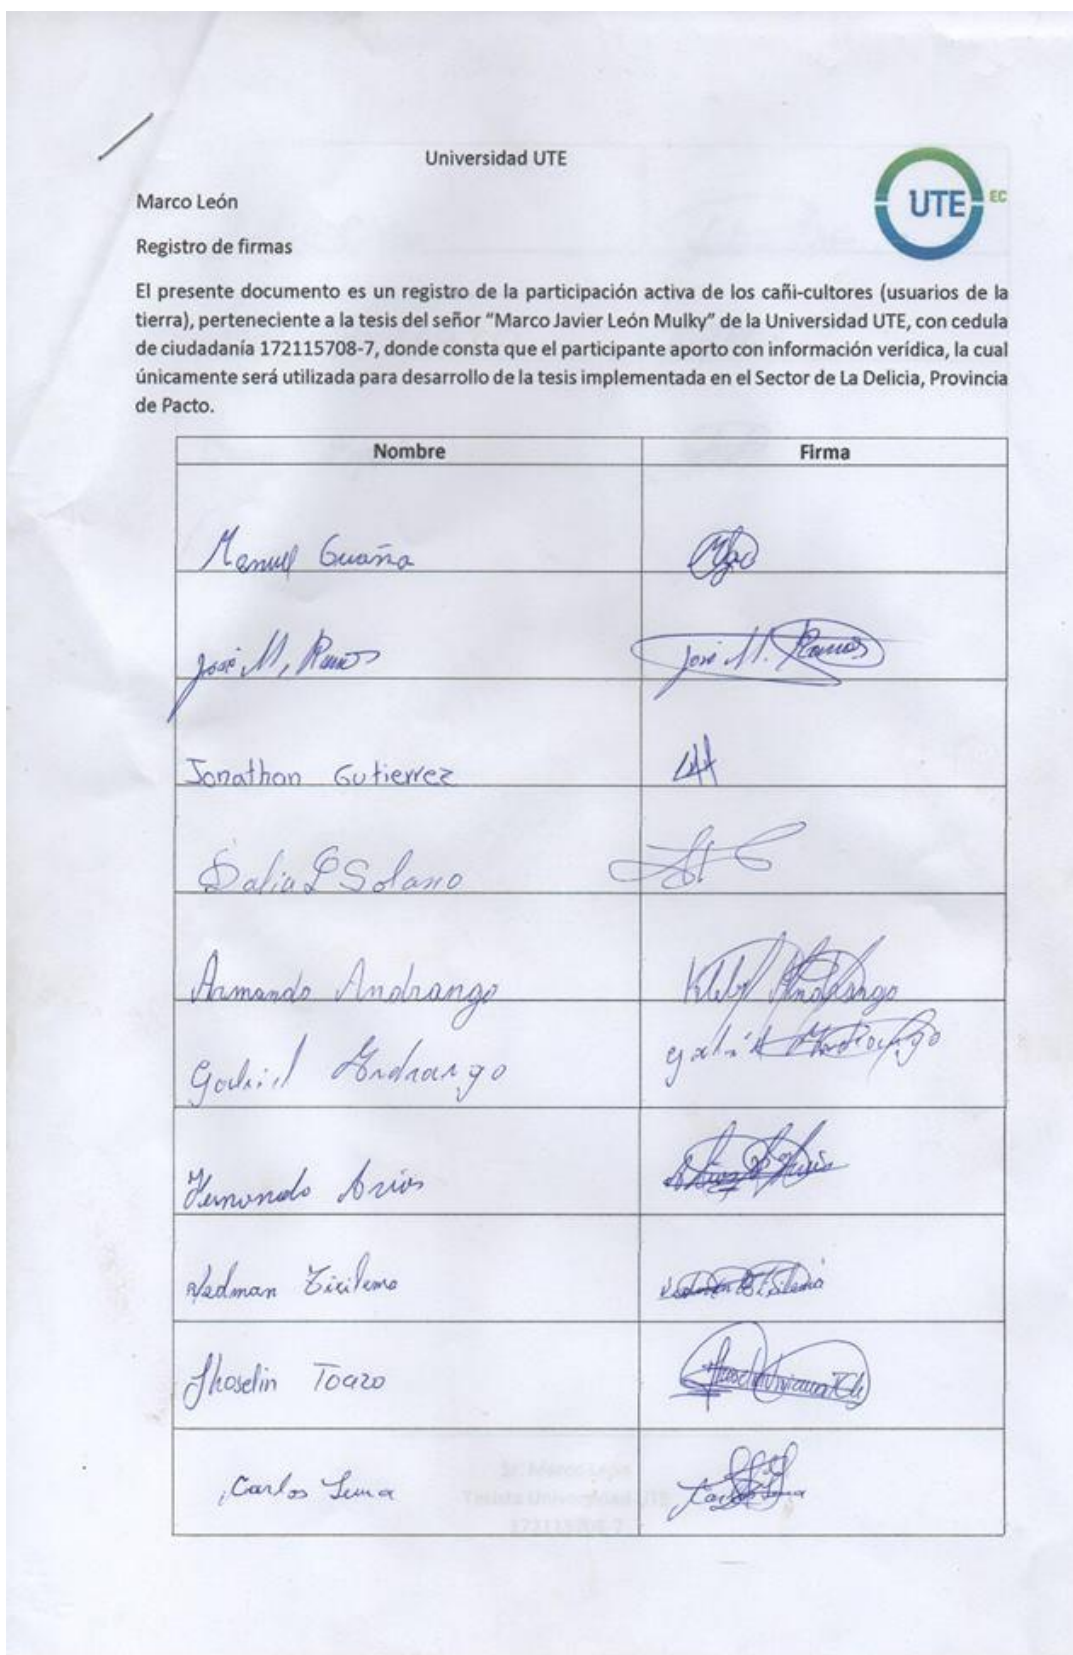 Universidad UTE
UTE EC
Marco León
Registro de firmas
El presente documento es un registro de la participación activa de los cañi-cultores (usuarios de la
tierra), perteneciente a la tesis del señor “Marco Javier León Mulky” de la Universidad UTE, con cedula
de ciudadanía 172115708-7, donde consta que el participante aporto con información verídica, la cual
únicamente será utilizada para desarrollo de la tesis implementada en el Sector de La Delicia, Provincia
de Pacto.
Nombre Firma
Manuel Guaña
José M, Ramos José M. Ramos
Jonathan Gutierrez
Dalia L Solano
Armando Andrango Andrango
Gabriel Andrango Gabriel Andrango
Hernando Arias
Toazo
Carlos Luna Carlos Luna